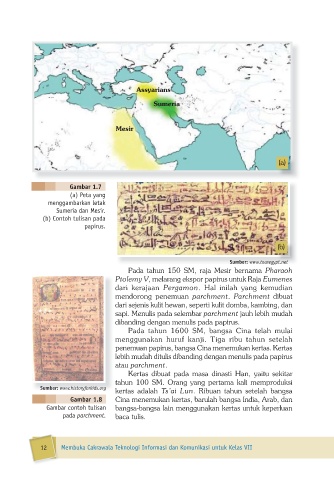 Assyarians
Sumeria
Mesir
(a)
Gambar 1.7
(a) Peta yang
menggambarkan letak
Sumeria dan Mesir.
(b) Contoh tulisan pada
papirus.
(b)
Sumber: www.touregypt.net
Pada tahun 150 SM, raja Mesir bernama Pharaoh
Ptolemy V, melarang ekspor papirus untuk Raja Eumenes
dari kerajaan Pergamon. Hal inilah yang kemudian
mendorong penemuan parchment. Parchment dibuat
dari sejenis kulit hewan, seperti kulit domba, kambing, dan
sapi. Menulis pada selembar parchment jauh lebih mudah
dibanding dengan menulis pada papirus.
Pada tahun 1600 SM, bangsa Cina telah mulai
menggunakan huruf kanji. Tiga ribu tahun setelah
penemuan papirus, bangsa Cina menemukan kertas. Kertas
lebih mudah ditulis dibanding dengan menulis pada papirus
atau parchment.
Kertas dibuat pada masa dinasti Han, yaitu sekitar
tahun 100 SM. Orang yang pertama kali memproduksi
kertas adalah Ts'ai Lun. Ribuan tahun setelah bangsa
Cina menemukan kertas, barulah bangsa India, Arab, dan
bangsa-bangsa lain menggunakan kertas untuk keperluan
baca tulis.
Sumber: www.historyforkids.org
Gambar 1.8
Gambar contoh tulisan
pada parchment.
12 Membuka Cakrawala Teknologi Informasi dan Komunikasi untuk Kelas VII